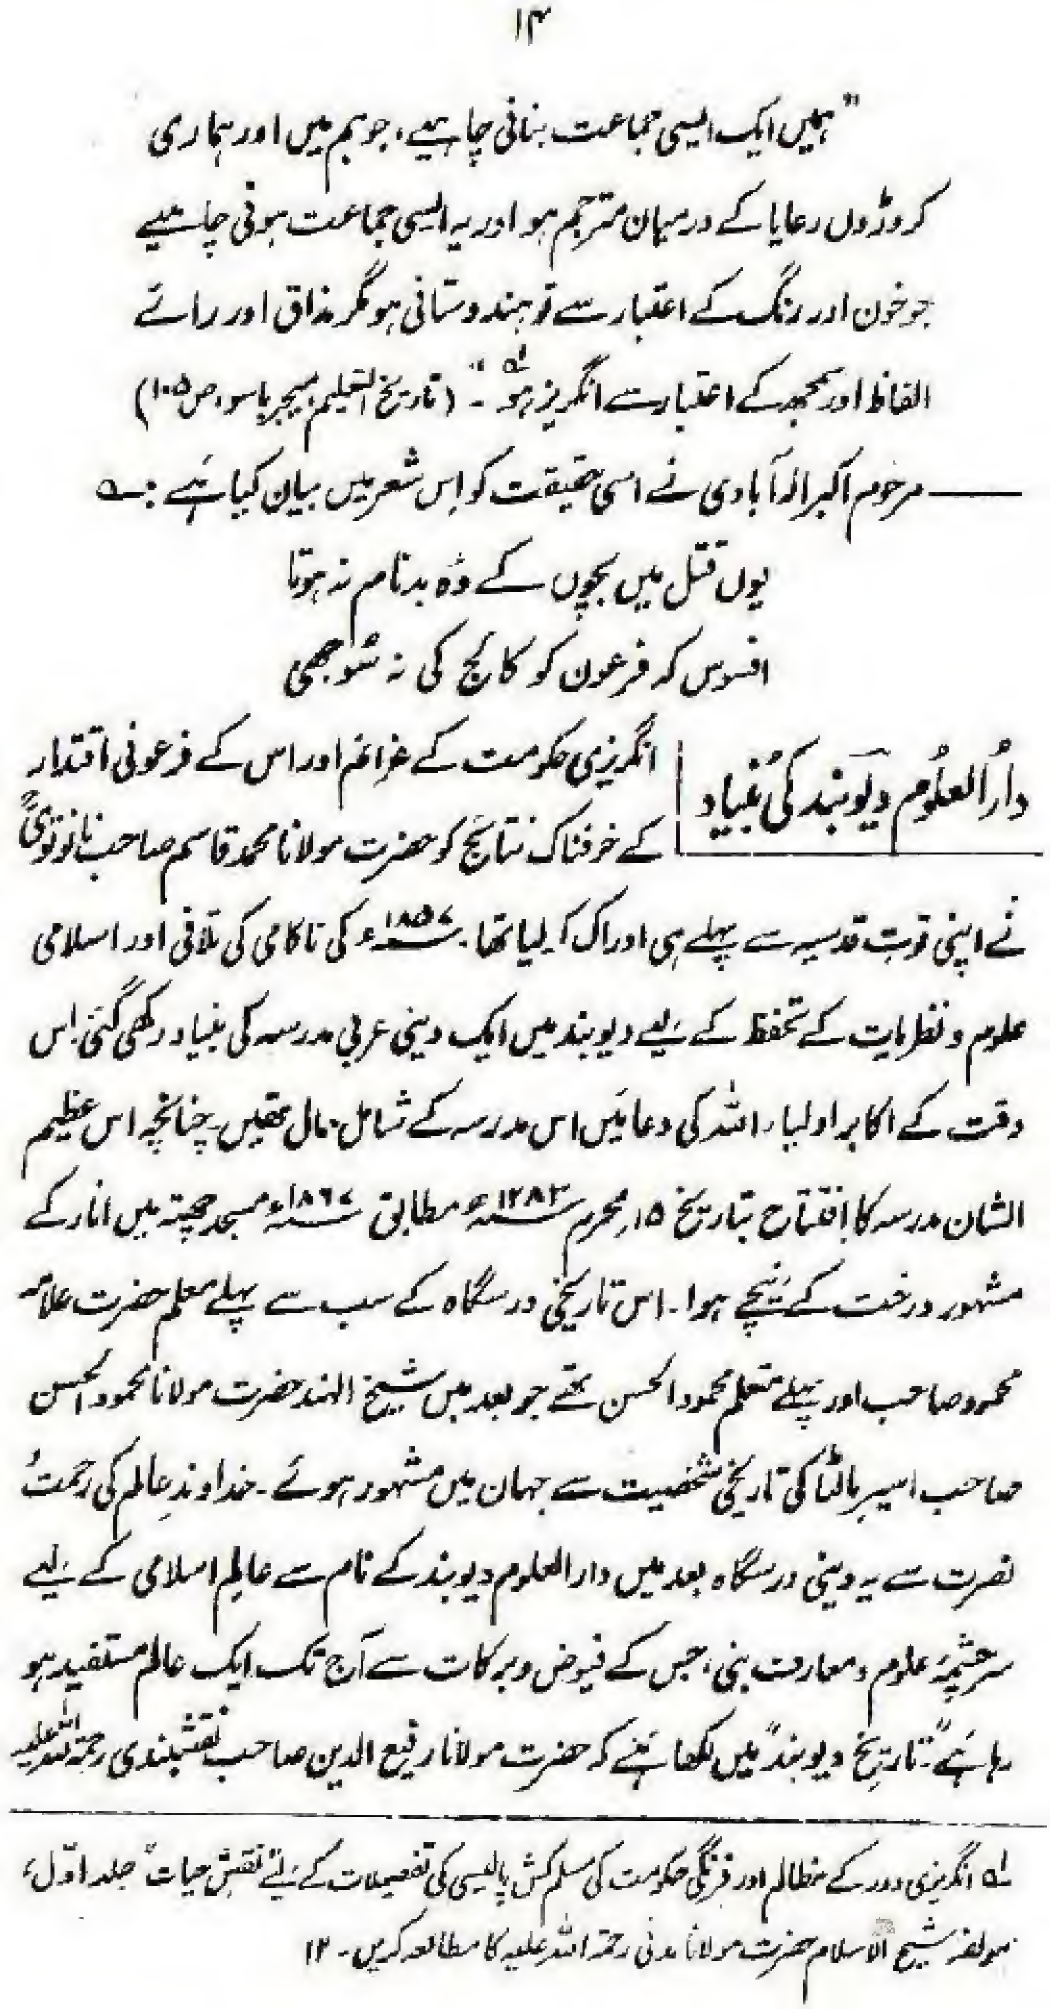 ۱۴
"ہمیں ایک ایسی جماعت بنانی چاہیے، جو ہم میں اور ہماری
کروڑوں رعایا کے درمیان مترجم ہو اور یہ ایسی جماعت ہونی چاہیے
جو خون اور رنگ کے اعتبار سے تو ہندوستانی ہو مگر مذاق اور رائے
الفاظ اور سمجھ کے اعتبار سے انگریز ہو"۔ لہ (تاریخ التعلیم میجر باسو، ص ۱۰۵)
مرحوم اکبر الٰہ آبادی نے اسی حقیقت کو اِس شعر میں بیان کیا ہے :۔
یوں قتل میں بچوں کے وُہ بدنام نہ ہوتا
افسوس کہ فرعون کو کالج کی نہ سُوجھی
دارُالعلُوم دیوبند کی بُنیاد
انگریزی حکومت کے عزائم اور اس کے فرعونی اقتدار
کے خوفناک نتائج کو حضرت مولانا محمد قاسم صاحب نانوتویؒ
نے اپنی قوتِ قدسیہ سے پہلے ہی ادراک کر لیا تھا۔ ۱۸۵۷ء کی ناکامی کی تلافی اور اسلامی
علوم و نظریات کے تحفظ کے لیے دیوبند میں ایک دینی عربی مدرسہ کی بنیاد رکھی گئی۔ اس
وقت کے اکابر اولیاء اللہ کی دعائیں اس مدرسہ کے شامل حال تھیں۔ چنانچہ اس عظیم
الشان مدرسہ کا افتتاح بتاریخ ۱۵ محرم ۱۲۸۳ھ مطابق ۱۸۶۷ء مسجد چھتہ میں انار کے
مشہور درخت کے نیچے ہوا۔ اس تاریخی درسگاہ کے سب سے پہلے معلم حضرت علامہ
محمود صاحب اور پہلے متعلم محمود الحسن تھے جو بعد میں شیخ الہند حضرت مولانا محمود الحسن
صاحب اسیرِ مالٹا کی تاریخی شخصیت سے جہان میں مشہور ہوئے۔ خداوندِ عالم کی رحمت و
نصرت سے یہ دینی درسگاہ بعد میں دارالعلوم دیوبند کے نام سے عالمِ اسلامی کے لیے
سرچشمۂ علوم و معارف بنی، جس کے فیوض و برکات سے آج تک ایک عالم مستفید ہو
رہا ہے۔ "تاریخ دیوبند" میں لکھا ہے کہ حضرت مولانا رفیع الدین صاحب نقشبندی رحمۃ اللہ علیہ
لہ انگریزی دور کے مظالم اور فرنگی حکومت کی مسلم کش پالیسی کی تفصیلات کے لئے "نقشِ حیات" جلد اوّل،
مولفہ شیخ الاسلام حضرت مولانا مدنی رحمۃ اللہ علیہ کا مطالعہ کریں۔ ۱۲